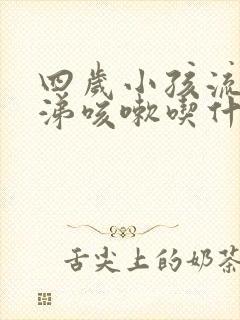 四歲小孩流
涕咳嗽喫什
舌尖上的奶茶